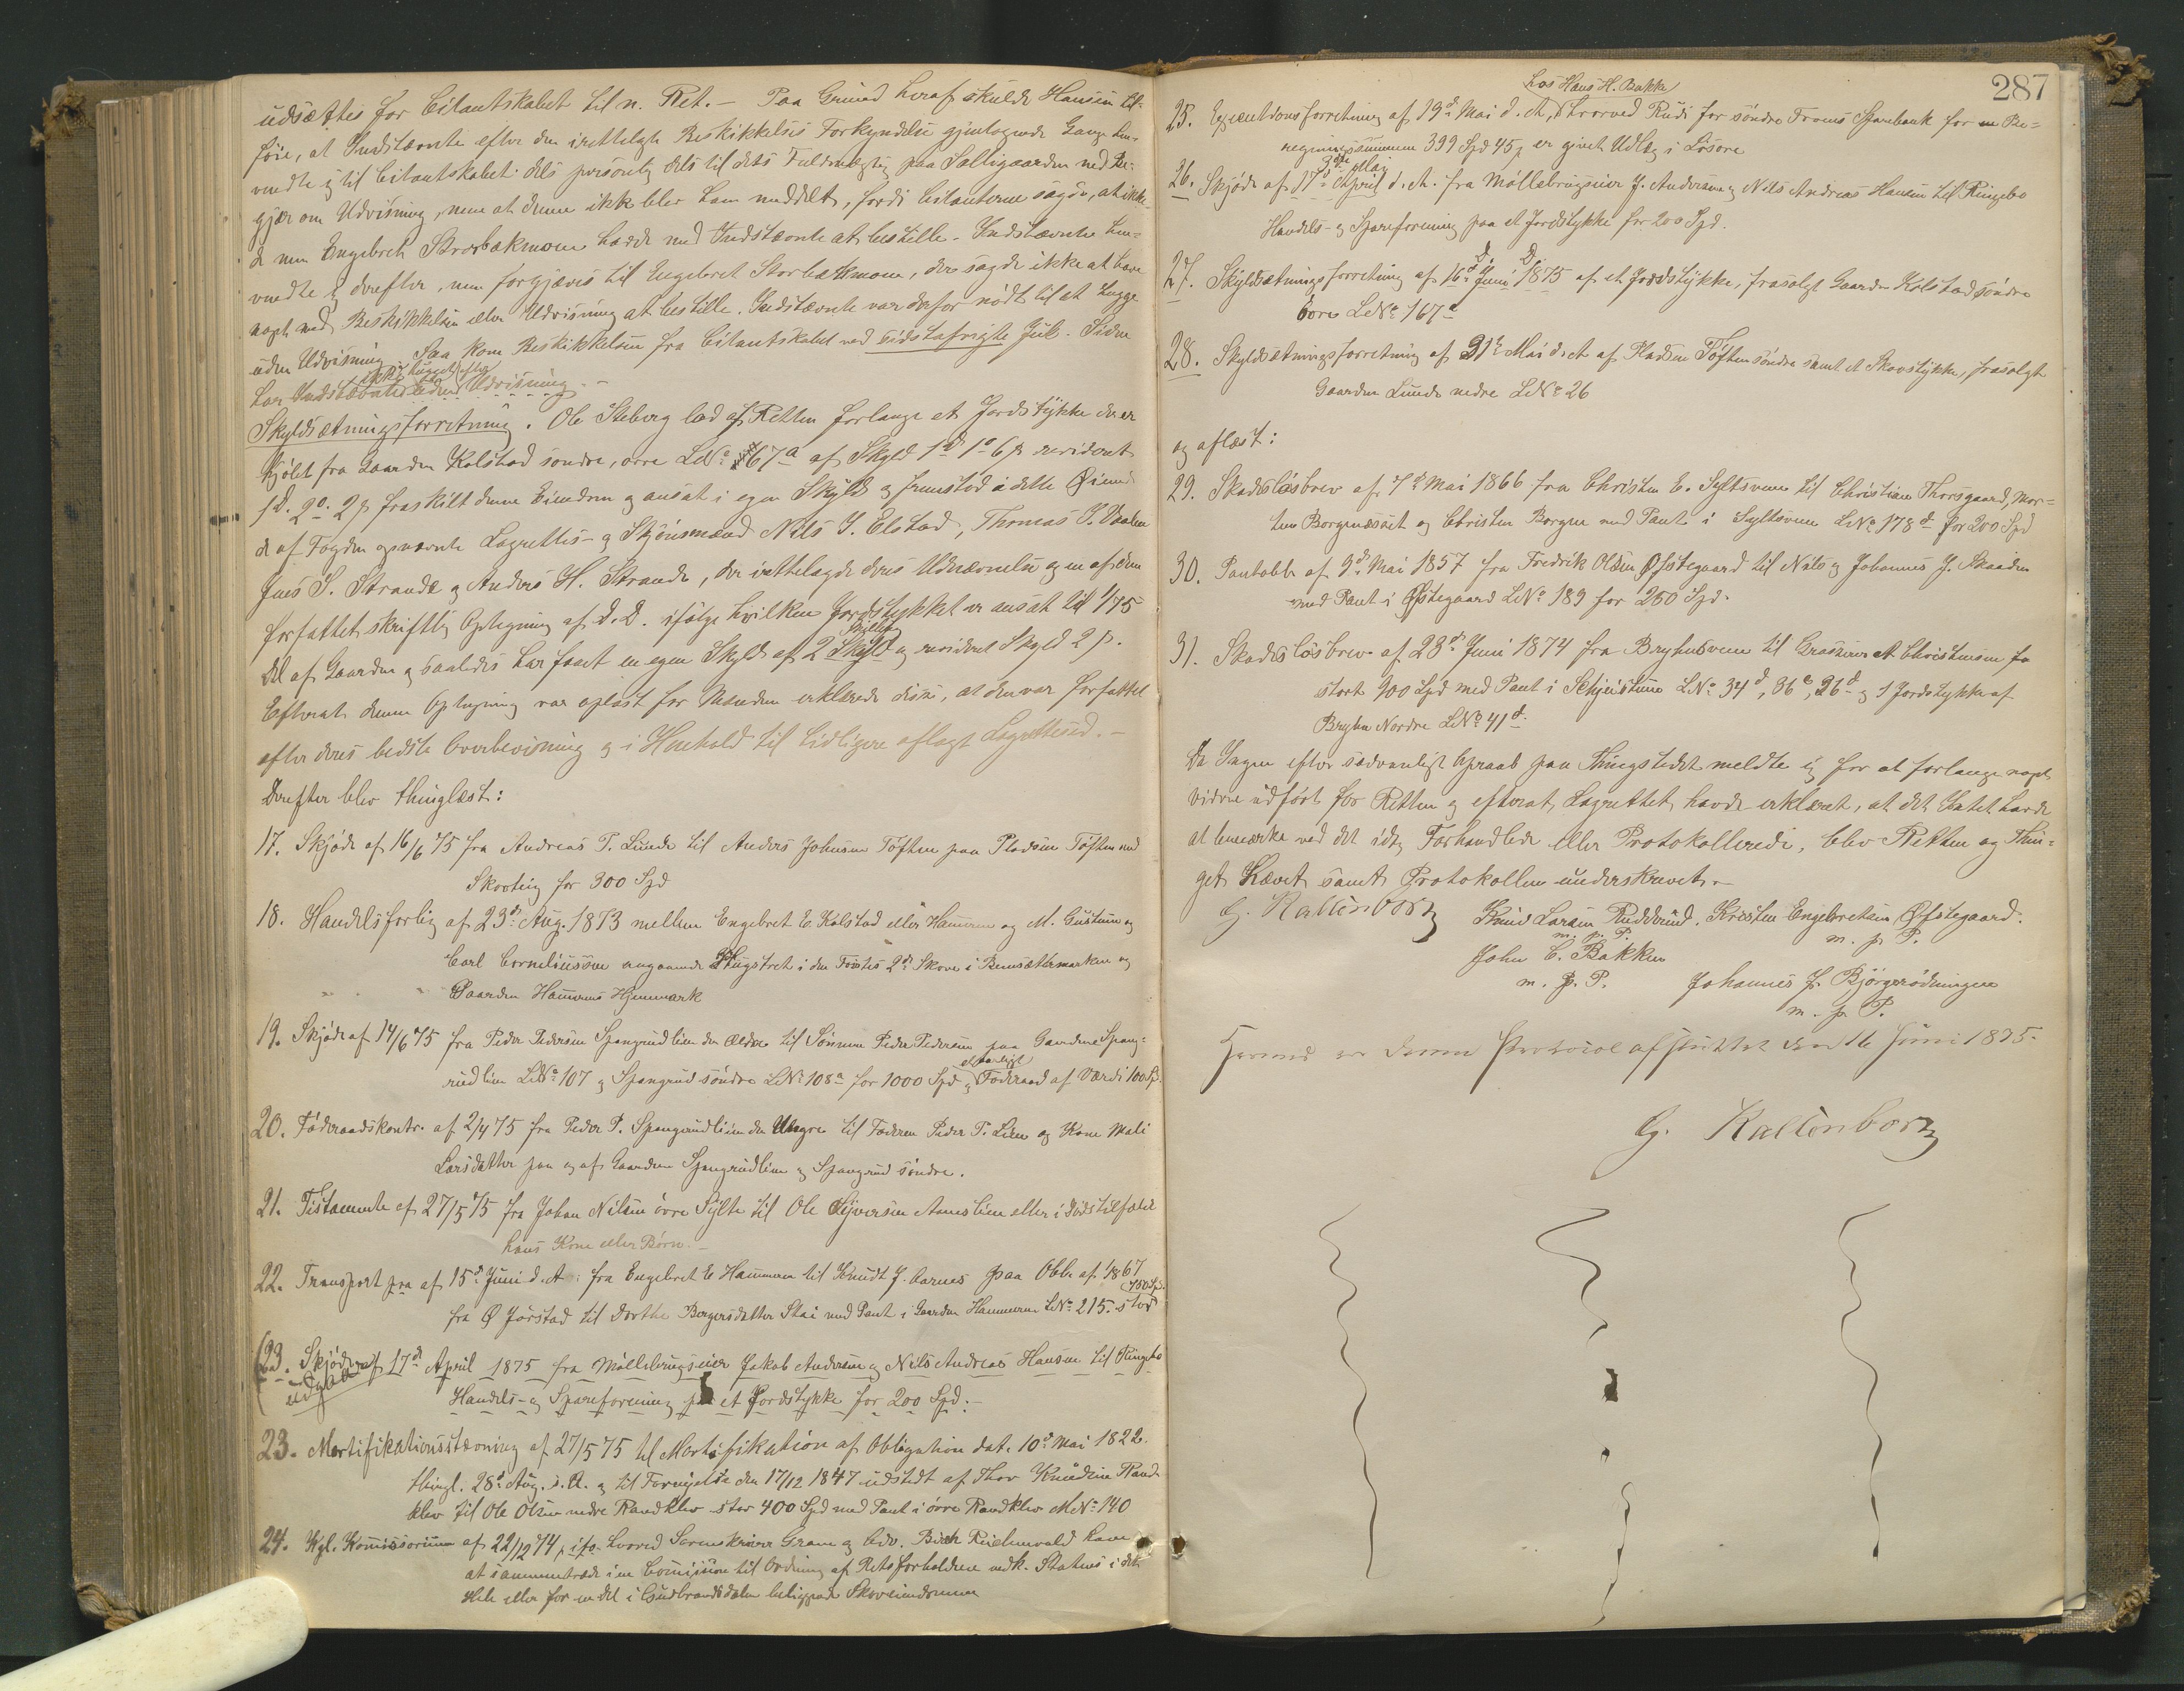 udsættes for Citantskabet til n. Ret. — Paa Grund heraf skulde Hansen til-
føie, at Indstævnte efter den irettelagte Beskikkelses Forkyndelse gjentagende Gange hen-
vendte sig til Citantskabet dels personlig dels til dets Fuldmægtig paa Selliegaarden med Be-
gjær om Udvisning, men at denne ikke blev ham meddelt, fordi Citanterne sagde, at ikke
de men Engebret Storbækmoen havde med Indstævnte at bestille. Indstævnte hen-
vendte sig derefter, men forgjæves til Engebret Storbækmoen, der sagde ikke at have
noget med Beskikkelsen eller Udvisning at bestille. Indstævnte var derfor nødt til at hugge
uden Udvisning. Saa kom Beskikkelsen fra Citantskabet ved sidstafvigte Jul. Siden
har Indstævnte ikke hugget efter uden Udvisning. —
Skyldsætningsforretning. Ole Steberg lod af Retten forlange et Jordstykke der er
kjøbt fra Gaarden Kolstad søndre, øvre LNo 167a af Skyld 1d 1o 6 p revideret
1d. 2o. 2 p fraskilt denne Eiendom og ansat i egen Skyld og fremstod i dette Øiemed
de af Fogden opnævnte Lagrettes- og Skjønsmænd Nils S. Elstad, Thomas J. Vaalen
Jens S. Strande og Anders H. Strande, der irettelagde deres Udnævnelse og en af dem
forfattet skriftlig Optegning af d. D. ifølge hvilken Jordstykket er ansat til 1/75
Del af Gaarden og saaledes har faaet en egen Skyld af 2 Skyld Skilling og revideret Skyld 2 p.
Efterat denne Optegning var oplæst for Mændene erklærede disse, at den var forfattet
efter deres bedste Overbevisning og i Henhold til tidligere aflagt Lagretteed. —
Derefter blev thinglæst:
17. Skjøde af 16/6 75 fra Andreas P. Lunde til Anders Johnsen Tøften paa Pladsen Tøften med
Skovteig for 300 Spd
18. Handelsforlig af 23d Aug. 1873 mellem Engebret E. Kolstad eller Hammeren og M. Gustum og
Carl Corneliussen angaaende Hugstret i den Førstes 2de Skove i Bemsættermarken og
Gaarden Hammerens Hjemmark
19. Skjøde af 14/6 75 fra Peder Pedersen Spangrudlien den ældre til Sønnen Peder Pedersen paa Gaardene Spang-
rudlien LNo 107 og Spangrud søndre LNo 108a for 1000 Spd og elsærligt Føderaad af Værdi 100 Sp.
20. Føderaadskontr. af 2/4 75 fra Peder P. Spangrudlien den Yngre til Faderen Peder P. Lien og Kone Mali
Larsdatter paa og af Gaardene Spangrudlien og Spangrud søndre.
21. Testamente af 27/5 75 fra Johan Nilsen øvre Sylte til Ole Syversen Aaneslien eller i Dødstilfælde
hans Kone eller Børn. —
22. Transport paa af 15d Juni d. A. fra Engebret E Hammeren til Knudt J. Aarnes paa Obl. af 1867
fra Ø Jørstad til Dorthe Bergersdatter Skai med Pant i Gaarden Hammeren LNo 215. stor 150 Sp.
(23. Skjøde af 17d April 1875 fra Møllebrugseier Jakob Andersen og Nils Andreas Hansen til Ringebo
( udgaar Handels- og Spareforening paa et Jordstykke for 200 Spd. —
23. Mortifikationsstævning af 27/5 75 til Mortifikation af Obligation dat. 10d Mai 1822.
thingl. 28d Aug. s. A. og til Fornyelse den 17/12 1847 udstedt af Thor Knudsen Rand-
klev til Ole Olsen nedre Randklev stor 400 Spd med Pant i øvre Randklev MNo 140
24. Kgl. Kommissorium af 22/12 74, ifø. hvorved Sorenskriver Gram og Adv. Birch Reichenwald have
at sammentræde i en Comission til Ordning af Retsforholdene vedk. Statens i det
Hele eller for en Del i Gudbrandsdalen beliggende Skoveiendomme
287
hos Hans H. Bakke
25. Executionsforretning af 19d Mai d. A., hvorved Rudi for søndre Frons Sparebank for en Be-
regningssummen 399 Spd 45 p er givet Udlæg i Løsøre
3die Mai
26. Skjøde af 17d April d. A. fra Møllebrugseier J. Andersen og Nils Andreas Hansen til Ringebo
Handels- og Spareforening paa et Jordstykke for 200 Spd.
d. D.
27. Skyldsætningsforretning af 16d Juni 1875 af et Jordstykke, frasolgt Gaarden Kolstad søndre
øvre LNo 167a
28. Skyldsætningsforretning af 31te Mai d. A. af Pladsen Tøften søndre samt et Skovstykke, frasolgt
Gaarden Lunde nedre LNo 26
og aflæst:
29. Skadesløsbrev af 7d Mai 1866 fra Christen E. Syltsveen til Christian Thorsgaard, Mor-
ten Borgenæsset og Christen Borgen med Pant i Syltsveen LNo 178d for 200 Spd
30. Pantobl. af 9d Mai 1857 fra Fredrik Olsen Øfstegaard til Nils og Johannes J. Skaaden
med Pant i Øfstegaard LNo 189 for 250 Spd.
31. Skadesløsbrev af 23d Juni 1874 fra Bryhnsveen til Grosserer A Christensen fo
stort 900 Spd med Pant i Schjeistuen LNo 34d, 36c, 26d og 1 Jordstykke af
Bryhn Nordre LNo 41d
Da Ingen efter sædvanligt Opraab paa Thingstedet meldte sig for at forlange noget
videre udført for Retten og efterat Lagrettet havde erklæret, at det Intet havde
at bemærke ved det idag Forhandlede eller Protokollerede, blev Retten og Thin-
get Hævet samt Protokollen underskrevet. —
G. Kaltenborn Knud Larsen Ruddsrud. Kristen Engebretsen Øfstegaard.
m. p. P. m. p. P.
John C. Bakken
m. p. P. Johannes J. Bjørgerødningen
m. p. P.
Hermed er denne Protocol afsluttet den 16 Juni 1875.
G. Kaltenborn